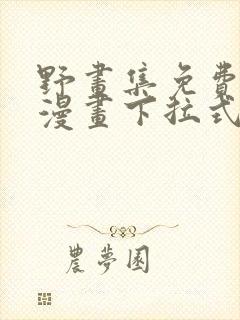 野畫集免費
漫畫下拉式
農夢園